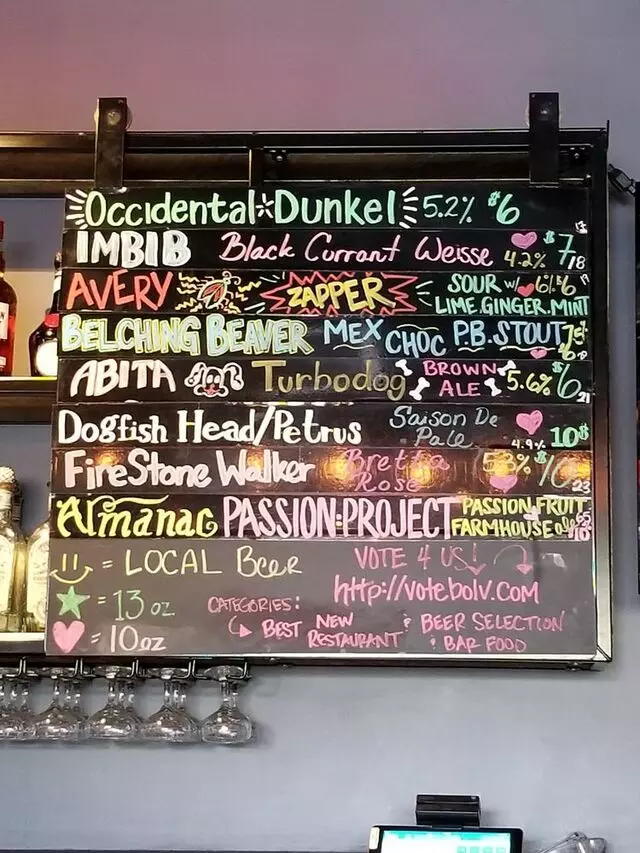 Occidental Dunkel 5.2% $6
IMBIB Black Currant Weisse 4.2% $7 18
AVERY ZAPPER SOUR W/ 6% $6
LIME.GINGER.MINT
BELCHING BEAVER MEX CHOC P.B. STOUT
ABITA Turbodog BROWN ALE 5.6% $6 21
Dogfish Head/Petrus Saison De Pale 4.9% 10$
FireStone Walker Bretta Rose 23
Almanac PASSION PROJECT PASSION FRUIT
FARMHOUSE
= LOCAL Beer VOTE 4 US!
http://votebolv.com
= 13 oz CATEGORIES:
BEST NEW RESTAURANT BEER SELECTION
= 10oz BAR FOOD